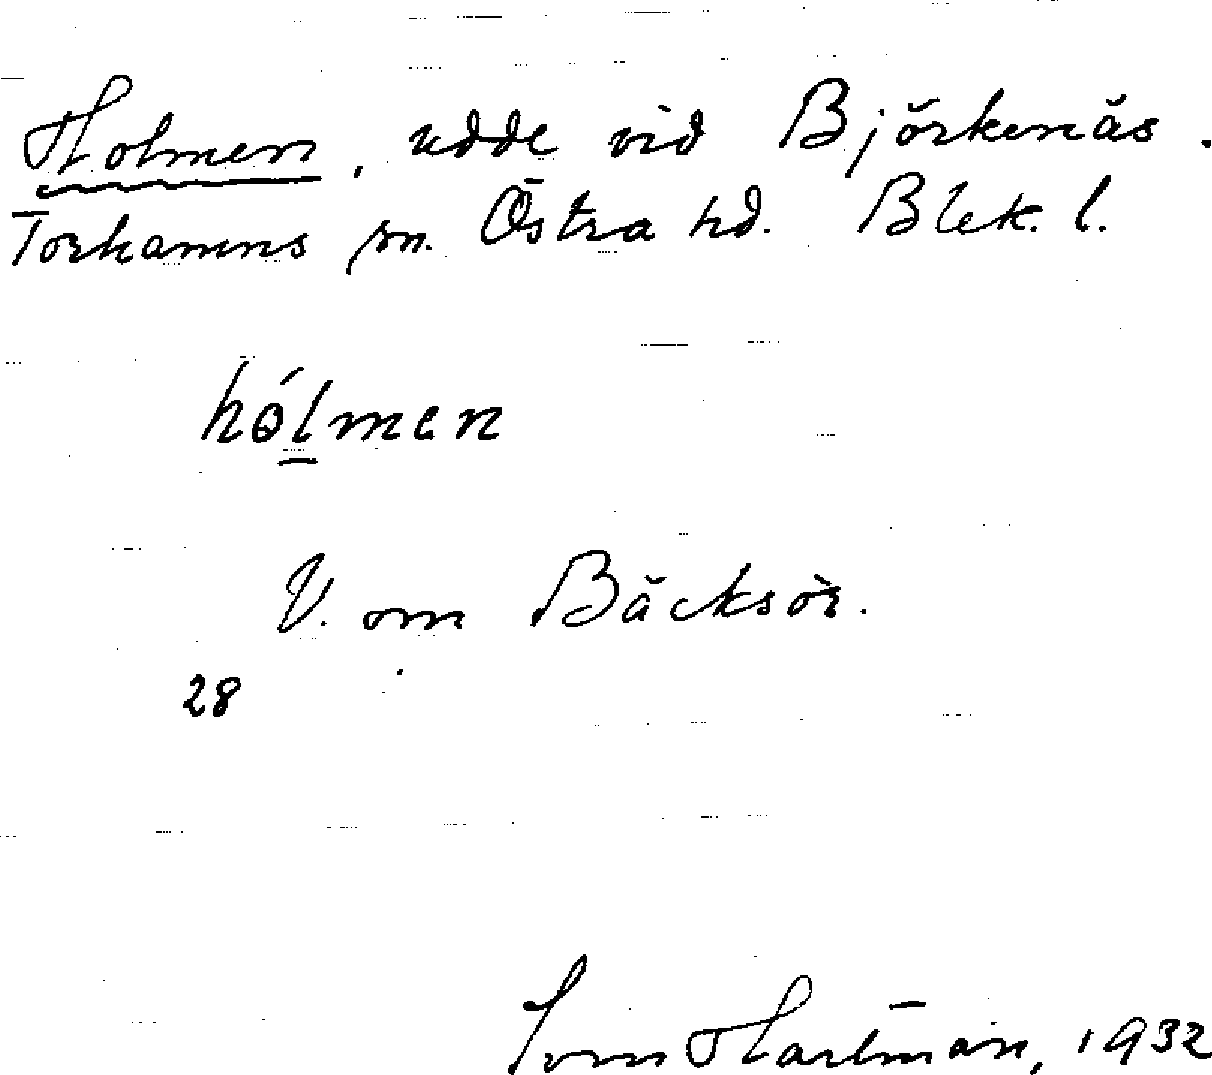 Holmen, udde vid Björkenäs.
Torhamns sn. Östra hd. Blek. l.
hólmen
V. om Bäcksör.
28
Sven Hartman, 1932